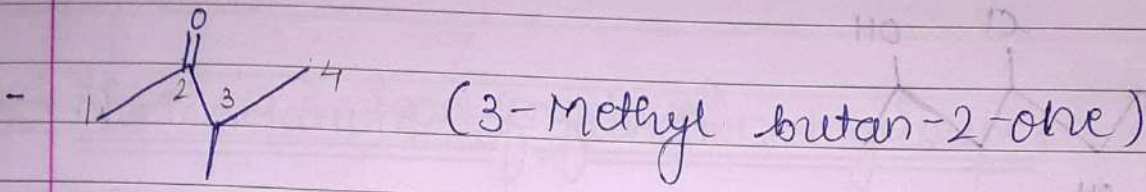 O
1 2 3 4
- (3-Methyl butan-2-one)